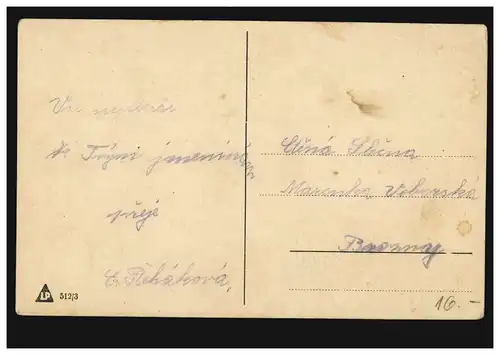 Vše nejlepší
k Tvým jmeninám
přeje
Řeháková,
Ctěná Slečna
Marenka Voborská
LP 512/3
16.-